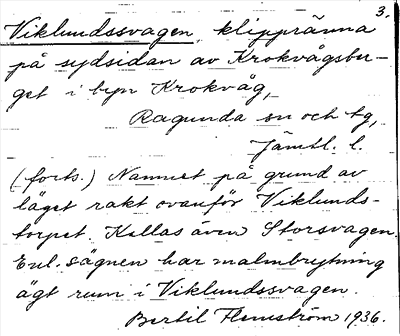 3.
Viklundssvagen, klippränna
på sydsidan av Krokvågsber-
get i byn Krokvåg,
Ragunda sn och tg,
Jämtl. l.
(forts.) Namnet på grund av
läget rakt ovanför Viklunds-
torpet. Kallas även Storsvagen.
Enl. sägnen har malmbrytning
ägt rum i Viklundssvagen.
Bertil Flemström 1936.